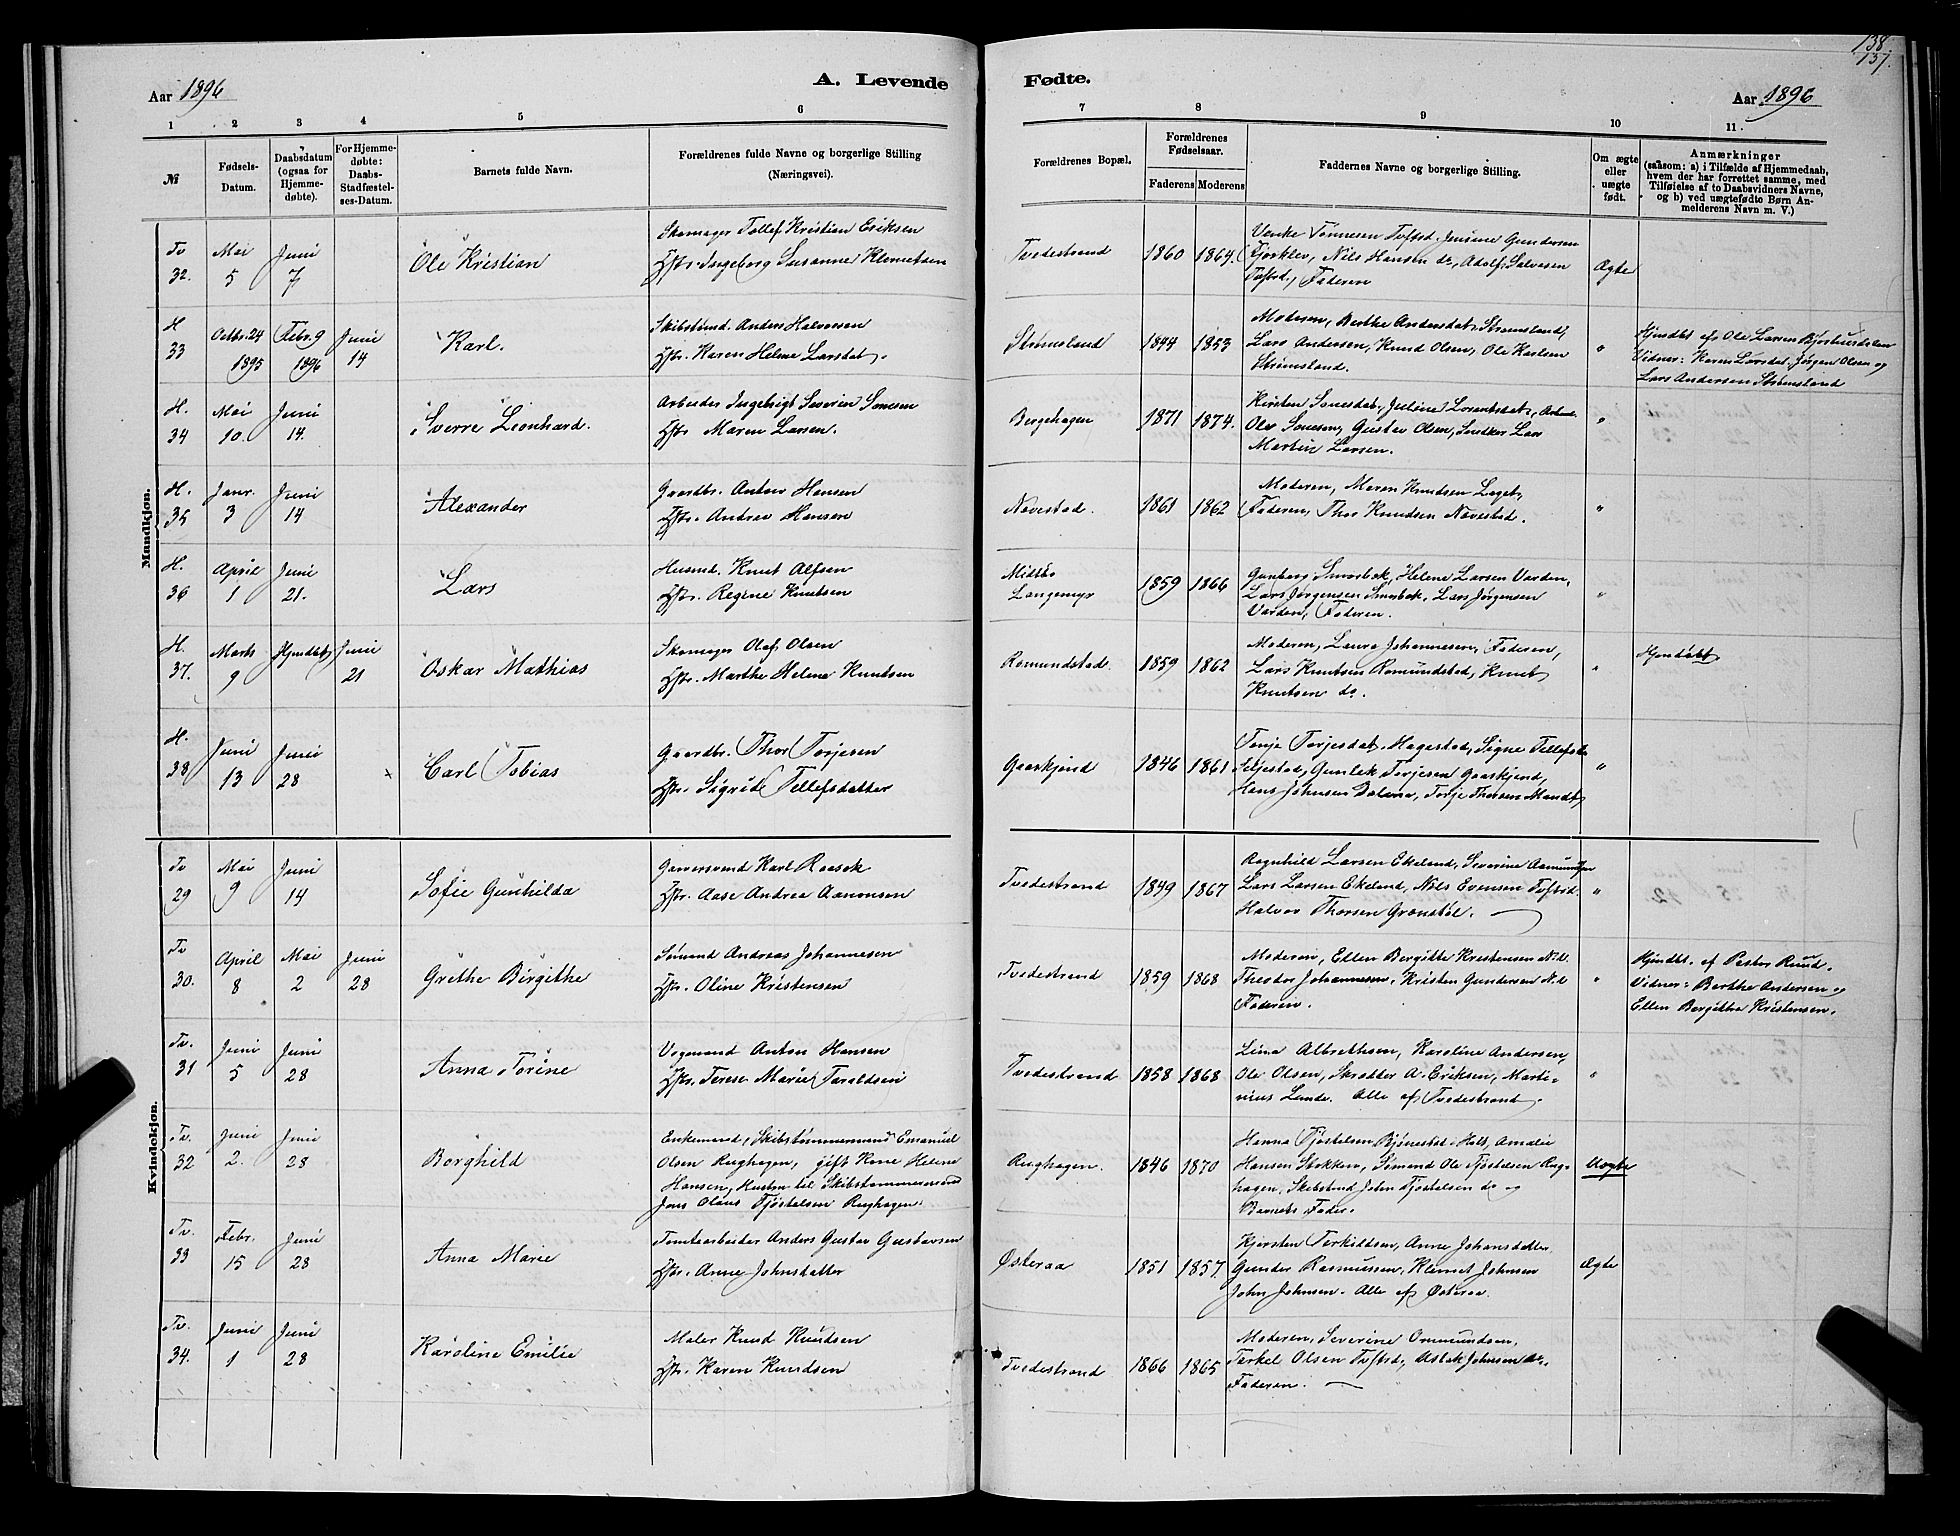 138
137.
Aar 1896
A. Levende
Fødte.
Aar 1896
1 2 3 4 5 6
7 8 9 10 11.
№
Fødsels-
Datum.
Daabsdatum
(ogsaa for
Hjemme-
døbte).
For Hjemme-
døbte:
Daabs-
Stadfæstel-
ses-Datum.
Barnets fulde Navn.
Forældrenes fulde Navne og borgerlige Stilling
(Næringsvei).
Forældrenes Bopæl.
Forældrenes
Fødselsaar.
Faderens Moderens
Faddernes Navne og borgerlige Stilling.
Om ægte
eller
uægte
født.
Anmærkninger
(saasom: a) i Tilfælde af Hjemmedaab,
hvem der har forrettet samme, med
Tilføielse af to Daabsvidners Navne,
og b) ved uægtefødte Børn An-
melderens Navn m. V.)
Mandkjøn.
Tv
32.
Mai
5
Juni
7
Ole Kristian
Skomager Tollef Kristian Eriksen
Hstr. Ingeborg Susanne Klemetsen
Tvedestrand
1860 1864.
Venke Tønnesen Tvftsd. Jensine Gundersen
Fjorklev, Nils Hansen do, Adolf Salvesen
Tvftsd., Faderen
Ægte
H
33
Octbr. 24
1895
Febr. 9
1896
Juni
14
Karl.
Skibstømd. Anders Halvorsen
Hstr. Karen Helene Larsdat.
Strømsland
1844 1853
Moderen, Berthe Andersdat. Strømsland,
Lars Andersen, Knud Olsen, Ole Karlsen
Strømsland.
"
Hjmdbt af Ole Larsen
Vidner: Karen Larsdat. Jørgen Olsen og
Lars Andersen Strømsland
H.
34
Mai
10.
Juni
14.
Sverre Lionhard.
Arbeider Ingebrigt Severin Sonesen
Hstr Maren Larsen.
Bergehagen
1871 1874.
Kirsten Sonesdat, Juline Lorentsdat,
Olev Sonesen, Gustav Olsen, Snedker Lars
Martin Larsen.
"
H.
35
Janr.
3
Juni
14
Alexander
Gaardbr. Anton Hansen
Hstr. Andrea Hansen
Navestad.
1861 1862
Moderen, Maren Knudsen Laget,
Faderen, Thor Knudsen Navestad.
"
H.
36
April
1
Juni
21.
Lars
Husmd. Knut Alfsen
Hstr. Regine Knutsen
Midtbø
Langemyr
1859 1866
Gunborg Smorbek, Helene Larsen Varden,
Lars Jørgensen Smorbek, Lars Jørgensen
Varden, Faderen.
"
H.
37.
Marts
9
Hjmdbt
Juni
21
Oskar Mathias
Skomager Olaf Olsen
Hstr. Marthe Helene Knutsen
Romundstad
1859 1862
Moderen, Laura Johannesen, Faderen,
Lars Knutsen Romundstad, Knut
Knutsen do.
"
Hjmdøbt
H.
38
Juni
13
Juni
28
Carl Tobias
Gaardbr. Thor Torjesen
Hstr. Sigrid Tellefsdatter
Gaaskjend
1846 1861
Tonje Torjesdat. Hagestad, Signe Tellefsd.
Seljestad, Gunlek Torjesen Gaaskjend,
Hans Johnsen Dalene, Torje Thorsen
"
Kvindekjøn.
Tv
29
Mai
9
Juni
14
Sofie Gunhilda
Garversvend Karl Raasok
Hstr. Aase Andrea Aanonsen
Tvedestrand
1849 1867
Ragnhild Larsen Ekeland, Severine Aamundsen
Lars Larsen Ekeland, Nils Evensen Tvftsd.
Halvor Thorsen Grønstøl.
"
Tv
30.
April
8
Mai
2
Juni
28
Grethe Birgithe
Sømand Andreas Johannesen
Hstr. Oline Kristensen
Tvedestrand
1859 1868
Moderen, Ellen Bergitte Kristensen N.d.
Theodor Johannesen, Kristen Gundersen N.d.
Faderen.
"
Hjmdbt. af Pastor Ruud.
Vidner: Berthe Andersen og
Ellen Bergitthe Kristensen.
Tv.
31
Juni
5
Juni
28
Anna Torine
Vognmand Anton Hansen
Hstr. Terese Marie Taraldsen
Tvedestrand
1858 1868
Lina Albrethsen, Karoline Andersen,
Ole Olsen, Skrædder A. Eriksen, Marti-
nius Lunde. Alle af Tvedestrand.
"
Tv.
32
Juni
2.
Juni
28
Borghild
Enkemand, Skibstømmermand Emanuel
Olsen Rughagen, gift Kone Helene
Hansen, Hustru til Skibstømmermand
Jens Olaus Tjøstelsen Rughagen.
Rughagen.
1846 1870
Hanna Tjøstelsen Bjønestad Holt, Amalie
Hansen Stokken, Sømand Ole Tjøstelsen Rug-
hagen, Skibstmd John Tjøstelsen do og
Barnets Fader.
Uægte
Tv.
33
Febr.
15
Juni
28
Anna Marie
Tomtearbeider Anders Gustav Gustavsen
Hstr. Anne Johnsdatter
Østeraa
1851 1857
Kjersten Terkildsen, Anne Johansdatter,
Gunder Rasmussen, Klemet Johnsen
John Johnsen. Alle af Østeraa.
Ægte
Tv.
34.
Juni
1
Juni
28
Karoline Emilie
Maler Knud Knudsen
Hstr. Karen Knudsen
Tvedestrand
1866 1865
Moderen, Severine Ommundsen,
Terkel Olsen Tvftsd, Aslak Johnsen do,
Faderen.